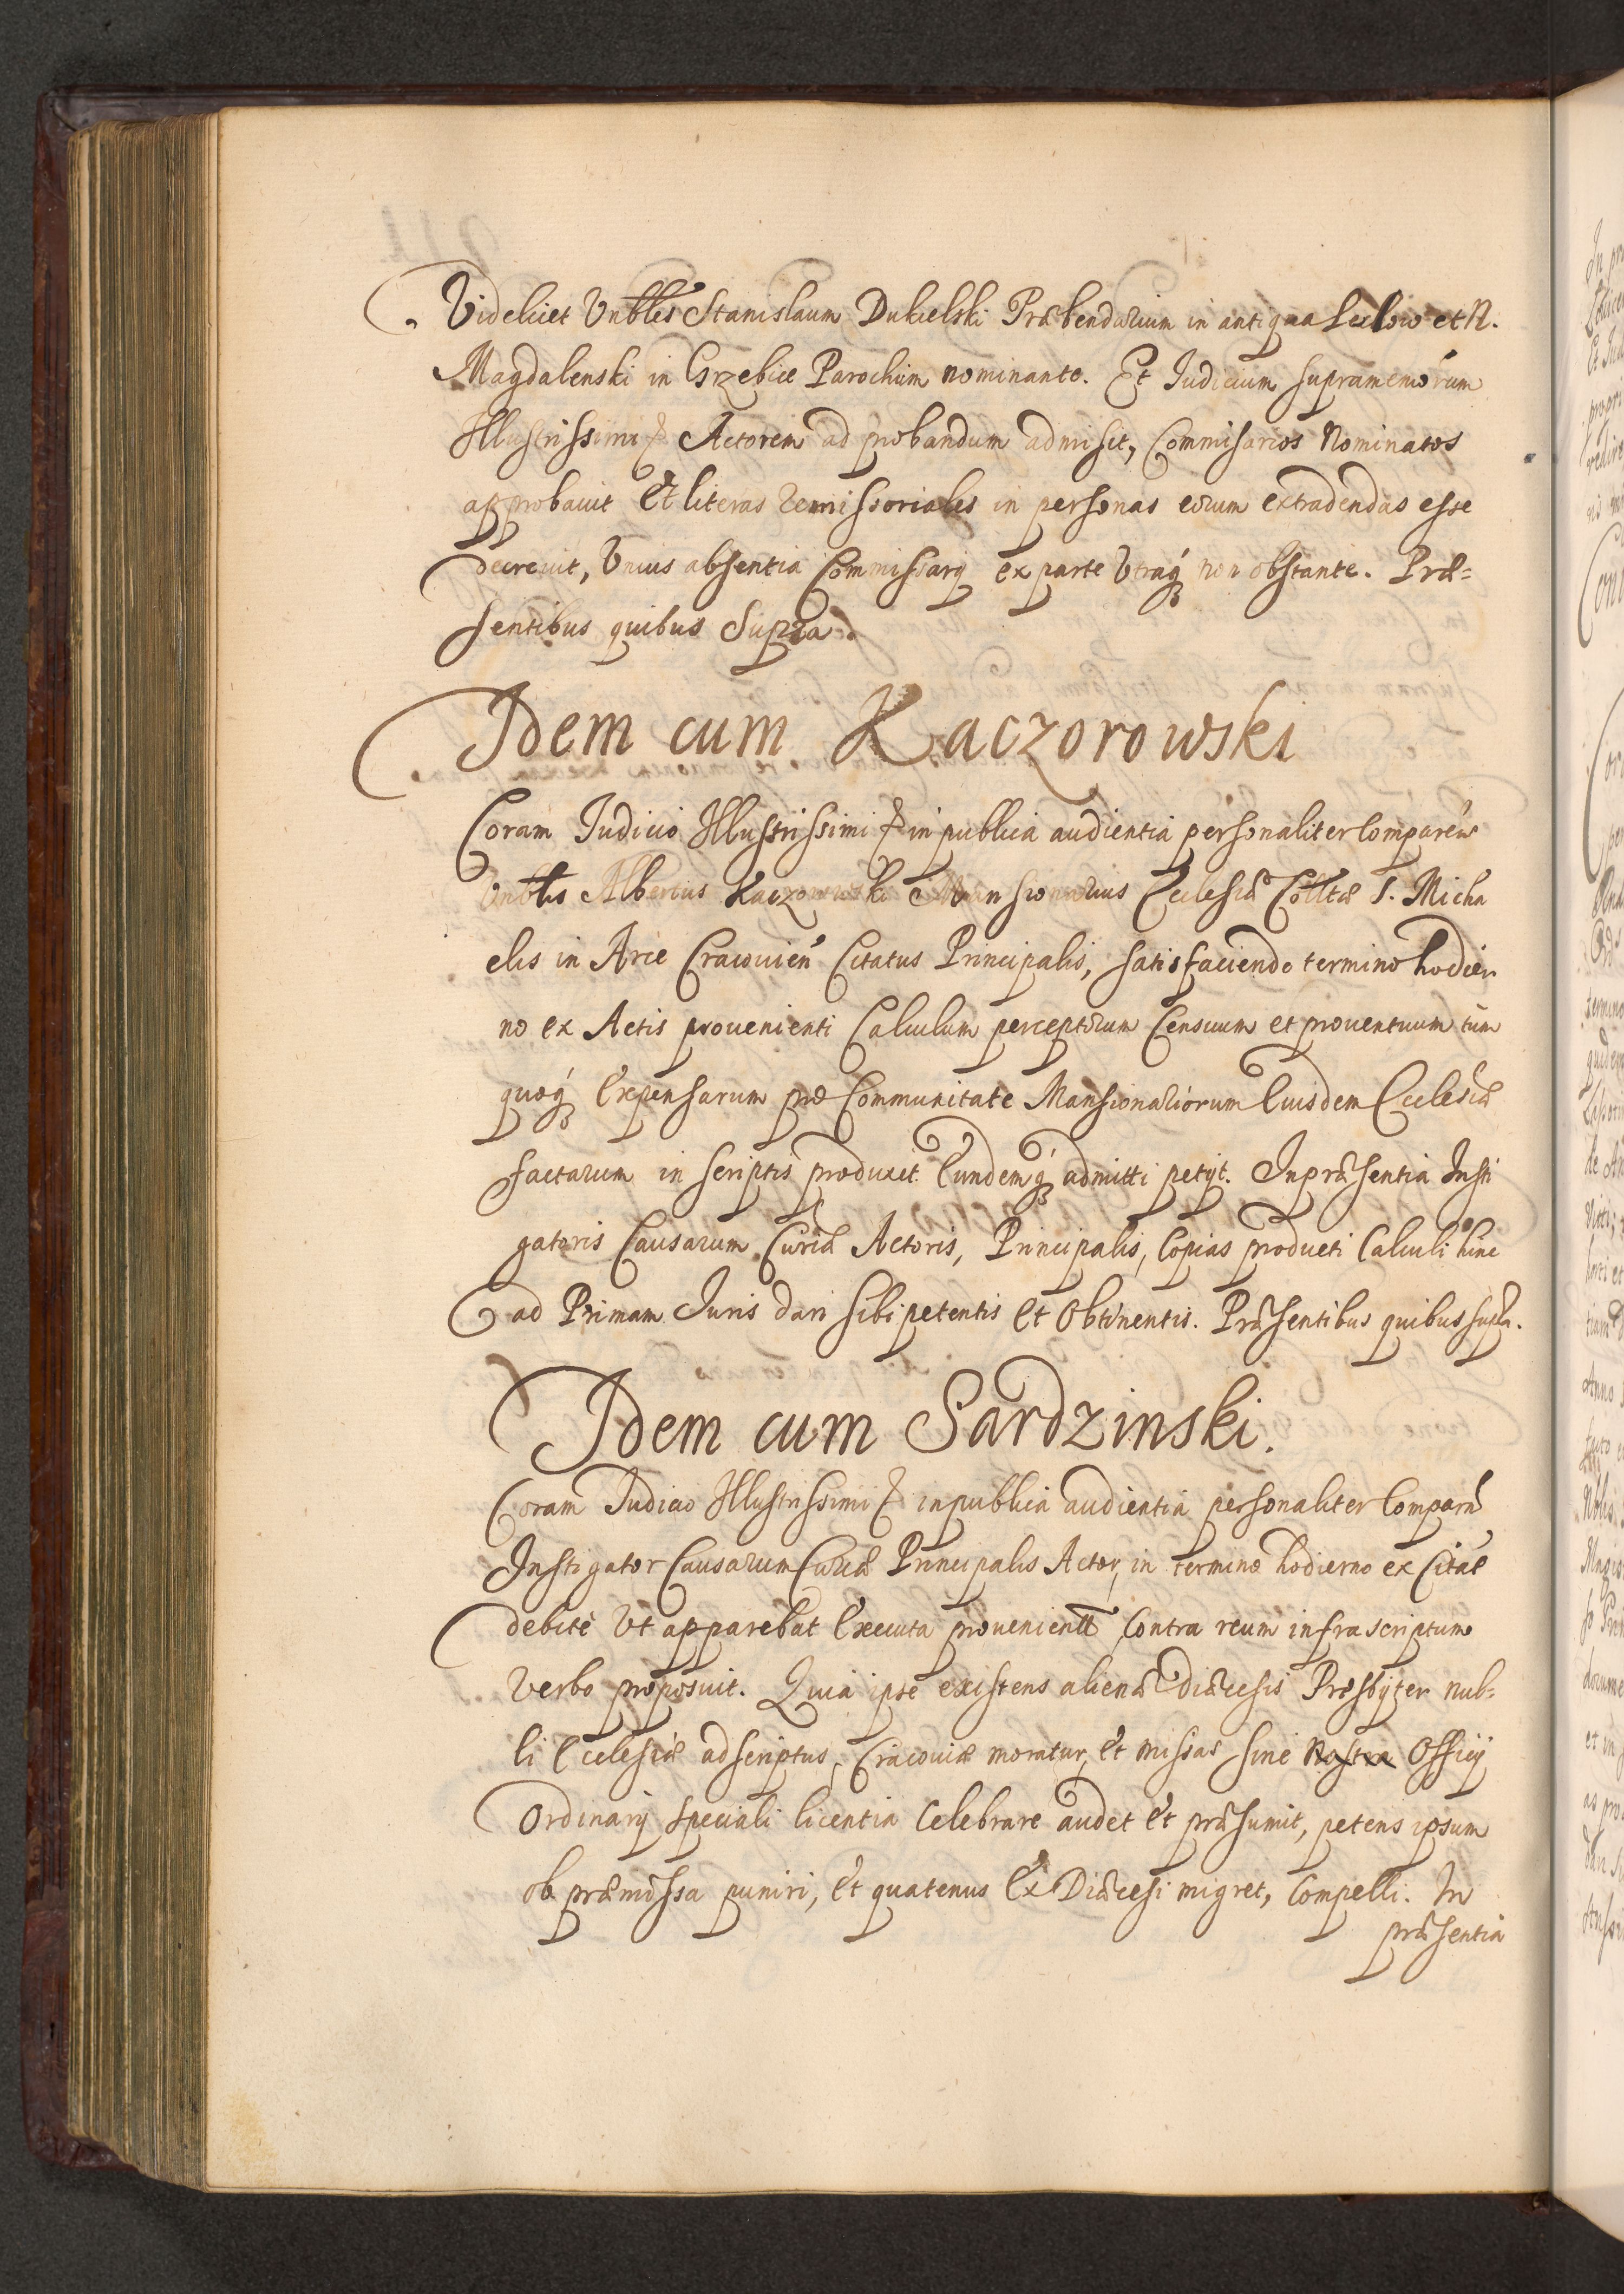 Videlicet Vnbles Stanislaum Dukielski Præbendarium in antiqua Lelow et N.
Magdalenski in Grzebice Parochum nominante. Et Judicium supramemorum
Illustrissimi & Actorem ad probandum admisit, Commisarios Nominatos
approbavit Et literas remissoriales in personas eorum extradendas esse
decrevit, Vnius absentia Commissarij ex parte Vtraq́ non obstante. Præ=
sentibus quibus Supra.
Idem cum Kaczorowski
Coram Judicio Illustrissimi & in publica audientia personaliter Comparens
Vnblis Albertus Kaczorowski Mansionarius Ecclesiæ Colltæ S. Micha
elis in Arce Cracouien̄ Citatus Principalis, satisfaciendo termino hodier
no ex Actis prouenienti Calculum perceptorum Censuum et prouentuum tum
quoq́ Expensarum pro Communitate Mansionariorum Eiusdem Ecclesiæ
factarum in scriptis produxit Eundemq́ admitti petijt. In præsentia Insti
gatoris Causarum Curiæ Actoris, Principalis, Copias producti Calculi hinc
ad Primam Juris dari sibi petentis et Obtinentis. Præsentibus quibus supra.
Idem cum Sardzinski.
Coram Judicio Illustrissimi & in publica audientia personaliter Comparen̄
Instigator Causarum Curiæ Principalis Actor, in termino hodierno ex Citat̄
debite Vt apparebat Executa prouenient̄ Contra reum infrascriptum
verbo proposuit. Quia ipse existens alienæ Diæcesis Præsbyter nul=
li Ecclesiæ adscriptus, Cracouiæ moratur, et missas sine Nostra Officij
Ordinarij speciali licentia Celebrare audet et præsumit, petens ipsum
ob præmissa puniri, et quatenus Ex Diæcesi migret, Compelli. In
præsentia